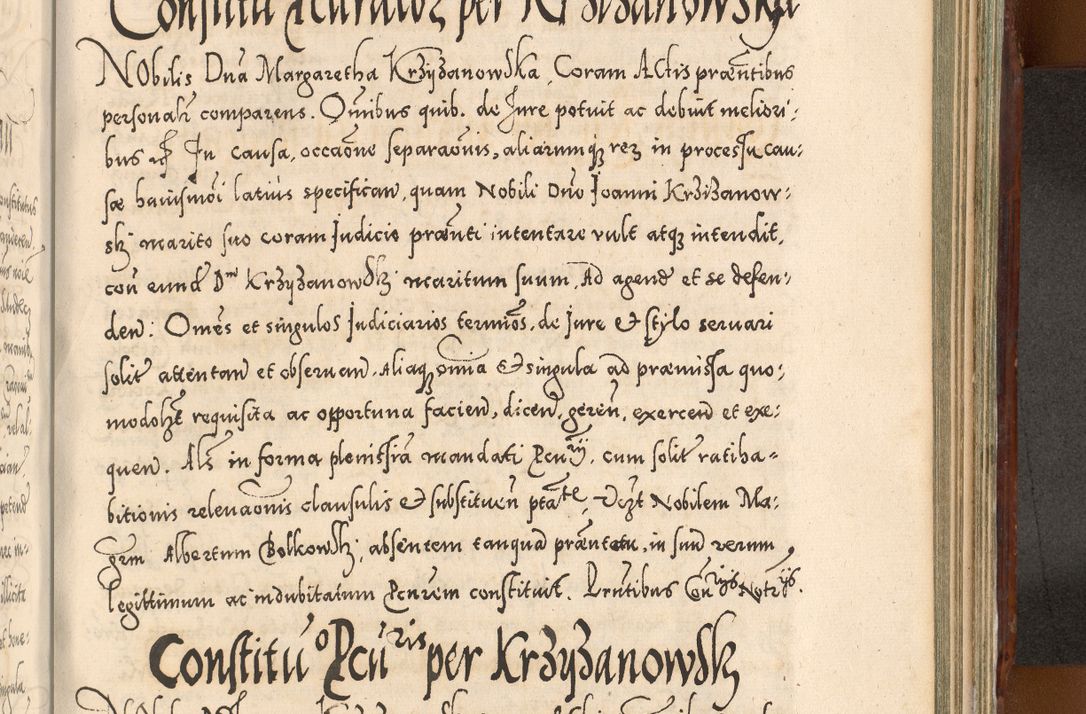 Constitū Pcuratoɀ per Krziżanowska
Nobilis Dnā Margaretha Krzyżanowska, Coram Actis præntibus
personalr comparens. Omnibus quib. de Jure potuit ac debuit meliori:
bus etc In causa, occaōne separaōnis, aliarumqȝ reɀ in processu cau:
sæ hmōi latius specifican, quam Nobili Dno Joanni Krziżanow:
skj marito suo coram Judicio prænti intentare vult atqȝ intendit,
cou eund Dnm Krzyżanowskj maritum suum, Ad agend et se defen:
den: Omēs et singulos Judiciarios termios, de Jure & stylo seruari
solit attentan et obseruan, Aliaqȝ omia & singula ad præmissa quo:
modolȝt requisita ac opportuna facien, dicen, geren, exercen et exe:
quen. Als in forma plenissīa mandati Pcurij, cum solit ratiha=
bitionis releuaōnis clausulis & substituen ptāte, Vdȝt Nobilem Ma:
grm Albertum Bolkowskj, absentem tanquā præntem, in suū verum
legittimum ac indubitatum Pcurem constituit. Prntibus
Constituo Pcūris per Krzyżanowskj